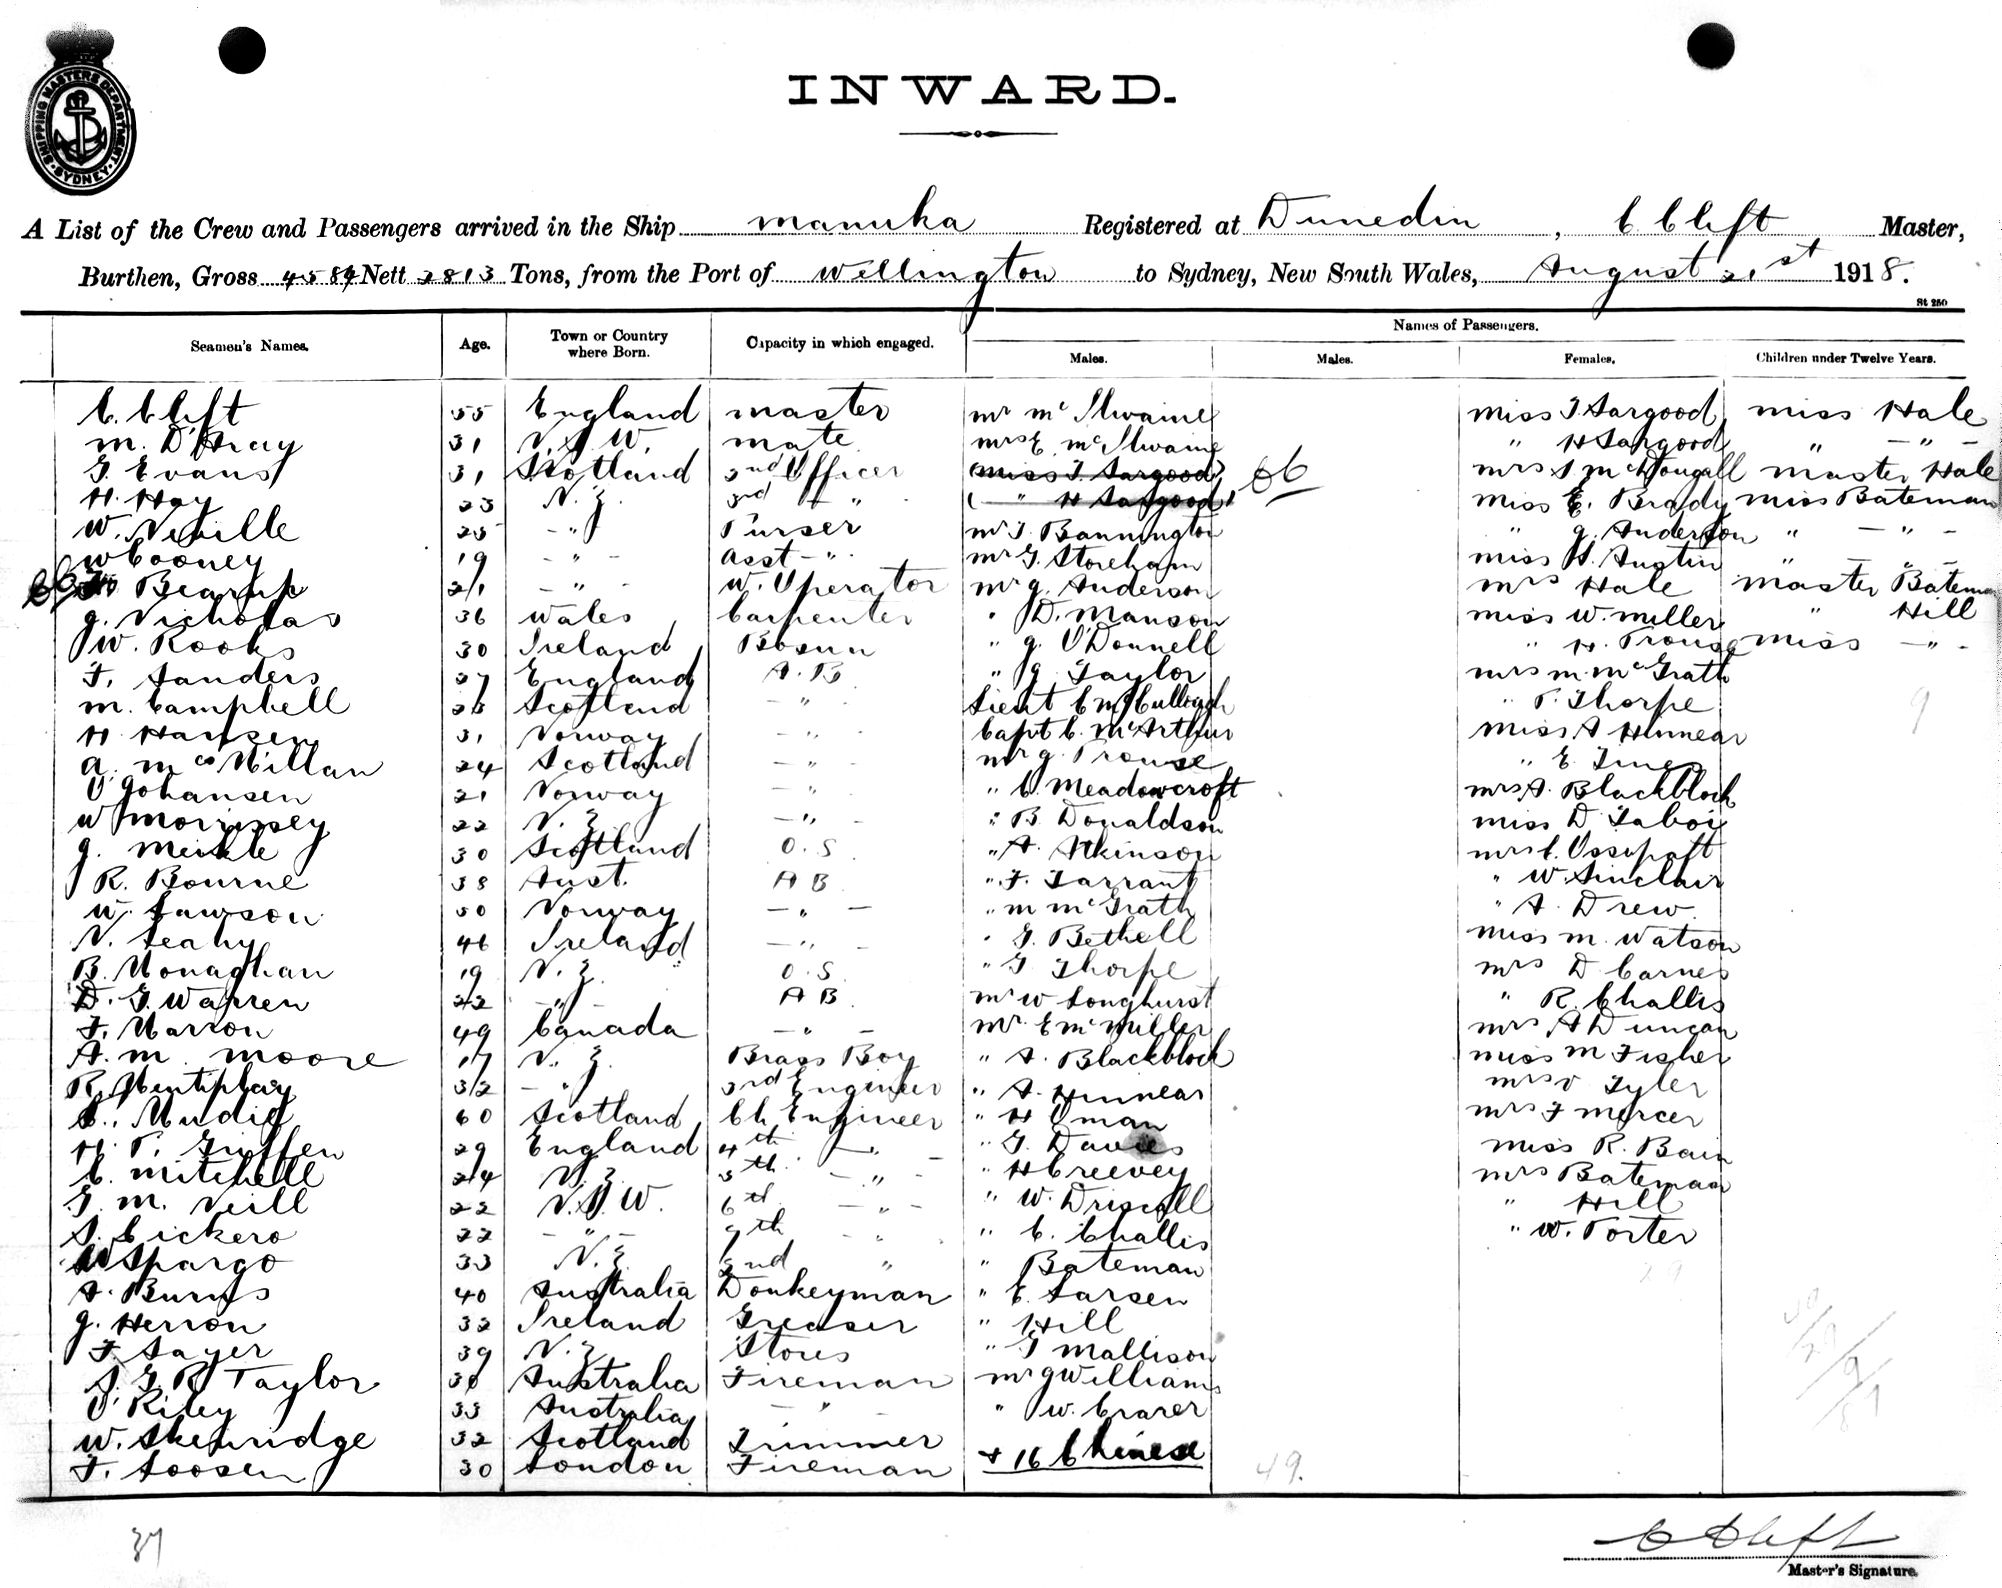 SHIPPING MASTERS DEPARTMENT · SYDNEY ·
INWARD.
A List of the Crew and Passengers arrived in the Ship Manuka Registered at Dunedin, C Clift Master,
Burthen, Gross 4584 Nett 2813 Tons, from the Port of Wellington to Sydney, New South Wales, August 21st 1918.
St 250
Names of Passengers.
Seamen's Names. Age. Town or Country where Born. Capacity in which engaged. Males. Males. Females. Children under Twelve Years.
C Clift 55 England Master Mr McIlwaine Miss J Sargood Miss Hale
M. D'Hray 31 N.S.W. Mate Mrs E McIlwaine " H Sargood " — " —
G Evans 31 Scotland 2nd Officer (Miss J. Sargood) Mrs McDougall Master Hale
H. Hay 23 N.Z. 3rd " " ( " H Sargood) Miss E. Brady Miss Bateman
W. Neville 25 — " — Purser Mr J. Bannington " G. Anderson " — " —
W Cooney 19 — " — Asst — " Mr G. Stoneham Miss H. Austin " — " —
Bearup 21 — " — W. Operator Mr G. Anderson Mrs Hale Master Bateman
G. Nicholas 36 Wales Carpenter " D. Manson Miss W. Miller " Hill
W. Rooks 30 Ireland Bosun " G. O'Donnell " H. Trouse Miss — " —
F. Sanders 27 England A.B " G Taylor Mrs M. McGrath
M. Campbell Scotland — " Lieut C McCullough " P. Thorpe 9
H Hansen 31 Norway — " — Capt C. McArthur Miss A Hinnear
A. McMillan 24 Scotland — " — Mr G. Trouse " E
O Johansen 21 Norway — " — " C. Meadowcroft Mrs A. Blackblock
W Morrissey 22 N.Z. — " — " B. Donaldson Miss D Tabor
G. Meikle 30 Scotland O.S " A. Atkinson Mrs C.
R. Bourne 38 Aust. A B " F. Tarrant " W. Sinclair
W. Lawson 50 Norway — " — " M McGrath " A. Drew
N. Leahy 46 Ireland — " — " G. Bethell Miss M. Watson
B. Monaghan 19 N.Z. O.S " G Thorpe Mrs D Carnes
D. G. Warren 22 — " — A B Mr W Longhurst " R. Challis
F. Marron 49 Canada — " — Mr E McMiller Mrs A Duncan
A. M. Moore 17 N.Z. Brass Boy " A. Blackblock Miss M Fisher
R. Hentiplay 32 — " — 3rd Engineer " A. Hinnear Mrs V Tyler
Mudie 60 Scotland Ch Engineer " H Oman Mrs F Mercer
H. P. Griffen 29 England 4th — " — " G. Davies Miss R. Bain
C. Mitchell 24 N.Z. 5th — " — " H Creevey Mrs Bateman
G. M. Neill 22 N.S.W. 6th — " — " W. Driscoll " Hill
S. Cickero 22 — " — 7th " " C. Challis " W. Porter
Spargo 33 N.Z. 2nd " " Bateman
A. Burns 40 Australia Donkeyman " E. Larsen
G. Herron 32 Ireland Greaser " Hill
F. Sayer 39 N.Z. Stores " G Mallison
S. G. R Taylor Australia Fireman Mr G Williams
O Riley 33 Australia — " " W. Crarer
W. Skelridge 32 Scotland Trimmer + 16 Chinese
F. Loosen 30 London Fireman 49.
37
C Clift
Master's Signature.